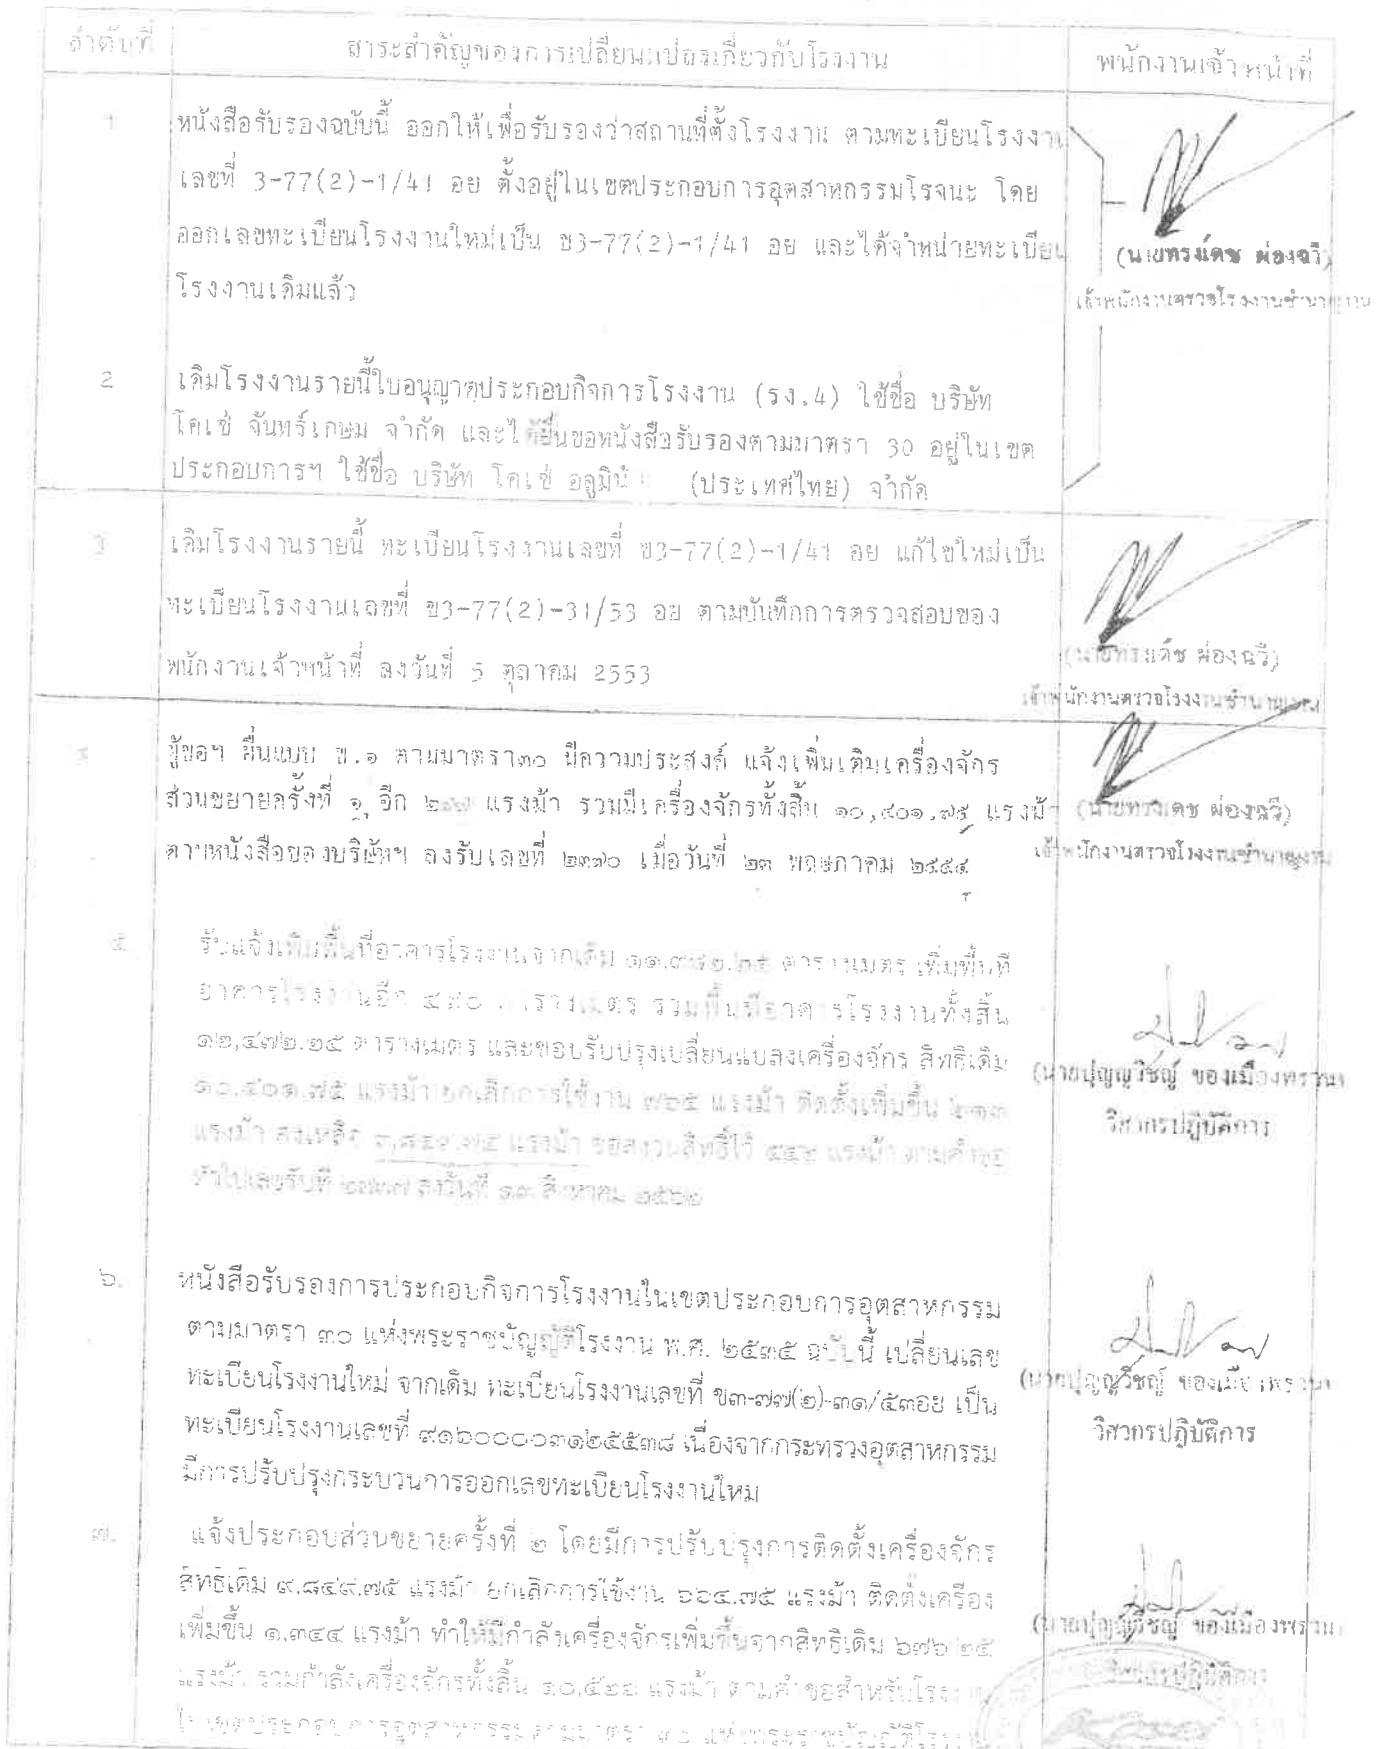 ลำดับที่ สาระสำคัญของการเปลี่ยนแปลงเกี่ยวกับโรงงาน พนักงานเจ้าหน้าที่
1 หนังสือรับรองฉบับนี้ ออกให้เพื่อรับรองว่าสถานที่ตั้งโรงงาน ตามทะเบียนโรงงาน
เลขที่ 3-77(2)-1/41 อย ตั้งอยู่ในเขตประกอบการอุตสาหกรรมโรจนะ โดย
ออกเลขทะเบียนโรงงานใหม่เป็น ข3-77(2)-1/41 อย และได้จำหน่ายทะเบียน
โรงงานเดิมแล้ว
(นายทรงเดช ผ่องฉวี)
เจ้าพนักงานตรวจโรงงานชำนาญงาน
2 เดิมโรงงานรายนี้ใบอนุญาตประกอบกิจการโรงงาน (รง.4) ใช้ชื่อ บริษัท
โคเช่ จันทร์เกษม จำกัด และได้ยื่นขอหนังสือรับรองตามมาตรา 30 อยู่ในเขต
ประกอบการฯ ใช้ชื่อ บริษัท โคเช่ (ประเทศไทย) จำกัด
3 เดิมโรงงานรายนี้ ทะเบียนโรงงานเลขที่ ข3-77(2)-1/41 อย แก้ไขใหม่เป็น
ทะเบียนโรงงานเลขที่ ข3-77(2)-31/53 อย ตามบันทึกการตรวจสอบของ
พนักงานเจ้าหน้าที่ ลงวันที่ 5 ตุลาคม 2553
(นายทรงเดช ผ่องฉวี)
เจ้าพนักงานตรวจโรงงานชำนาญงาน
ผู้ขอฯ ยื่นแบบ ข.๑ ตามมาตรา๓๐ มีความประสงค์ แจ้งเพิ่มเติมเครื่องจักร
ส่วนขยายครั้งที่ ๑ อีก แรงม้า รวมมีเครื่องจักรทั้งสิ้น ๑๐,๔๐๑.๗๕ แรงม้า
ตามหนังสือของบริษัทฯ ลงรับเลขที่ เมื่อวันที่ ๒๓ พฤษภาคม ๒๕๕๔
(นายทรงเดช ผ่องฉวี)
เจ้าพนักงานตรวจโรงงานชำนาญงาน
๕ รับแจ้งเพิ่มพื้นที่อาคารโรงงานจากเดิม ตารางเมตร เพิ่มพื้นที่
อาคารโรงงานอีก ๔๙๐ ตารางเมตร รวมพื้นที่อาคารโรงงานทั้งสิ้น
๑๒,๔๗๒.๒๕ ตารางเมตร และขอปรับปรุงเปลี่ยนแปลงเครื่องจักร สิทธิเดิม
๑๐,๔๐๑.๗๕ แรงม้า ยกเลิกการใช้งาน ๗๖๕ แรงม้า ติดตั้งเพิ่มขึ้น ๒๑๓
แรงม้า คงเหลือ ๙,๘๔๙.๗๕ แรงม้า ขอสงวนสิทธิ์ไว้ ๕๕๒ แรงม้า ตามคำขอ
ทั่วไปเลขรับที่ ลงวันที่ สิงหาคม ๒๕๖๒
(นายปุญญวิชญ์ ของเมืองพรวน)
วิศวกรปฏิบัติการ
๖. หนังสือรับรองการประกอบกิจการโรงงานในเขตประกอบการอุตสาหกรรม
ตามมาตรา ๓๐ แห่งพระราชบัญญัติโรงงาน พ.ศ. ๒๕๓๕ ฉบับนี้ เปลี่ยนเลข
ทะเบียนโรงงานใหม่ จากเดิม ทะเบียนโรงงานเลขที่ ข๓-๗๗(๒)-๓๑/๕๓อย เป็น
ทะเบียนโรงงานเลขที่ ๙๑๖๐๐๐๐๓๑๒๕๕๓๘ เนื่องจากกระทรวงอุตสาหกรรม
มีการปรับปรุงกระบวนการออกเลขทะเบียนโรงงานใหม่
(นายปุญญวิชญ์ ของเมืองพรวน)
วิศวกรปฏิบัติการ
๗. แจ้งประกอบส่วนขยายครั้งที่ ๒ โดยมีการปรับปรุงการติดตั้งเครื่องจักร
สิทธิเดิม ๙,๘๔๙.๗๕ แรงม้า ยกเลิกการใช้งาน ๖๖๔.๗๕ แรงม้า ติดตั้งเครื่อง
เพิ่มขึ้น ๑,๓๔๔ แรงม้า ทำให้มีกำลังเครื่องจักรเพิ่มขึ้นจากสิทธิเดิม
แรงม้า รวมกำลังเครื่องจักรทั้งสิ้น แรงม้า ตามคำขอสำหรับโรงงาน
ในเขตประกอบการอุตสาหกรรม ตามมาตรา ๓๐ แห่งพระราชบัญญัติโรงงาน
(นายปุญญวิชญ์ ของเมืองพรวน)
วิศวกรปฏิบัติการ